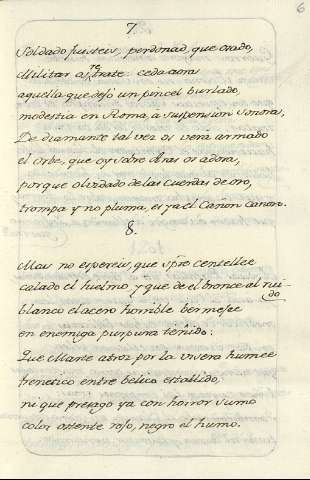 6
7.
Soldado fuisteis, perdonad, que osado,
Militar as te trate ceda aora
aquella que dejó un pincel burlado,
modestia en Roma, a suspension sonora,
De diamante tal vez os verá armado
el orbe, que oy sobre Aras os adora,
porque olvidado de las Cuerdas de oro,
trompa y no pluma, es ya el Cañon canoro.
8.
Mas no espereis, que spre centellee
calado el huelmo y que de el bronce al rui-
do
blanco el acero horrible bermegee
en enemiga purpura teñido:
Que Marte atroz por la visera humee
frenetico entre belico estallido,
ni que presago ya con horror sumo
color ostente rojo, negro el humo.